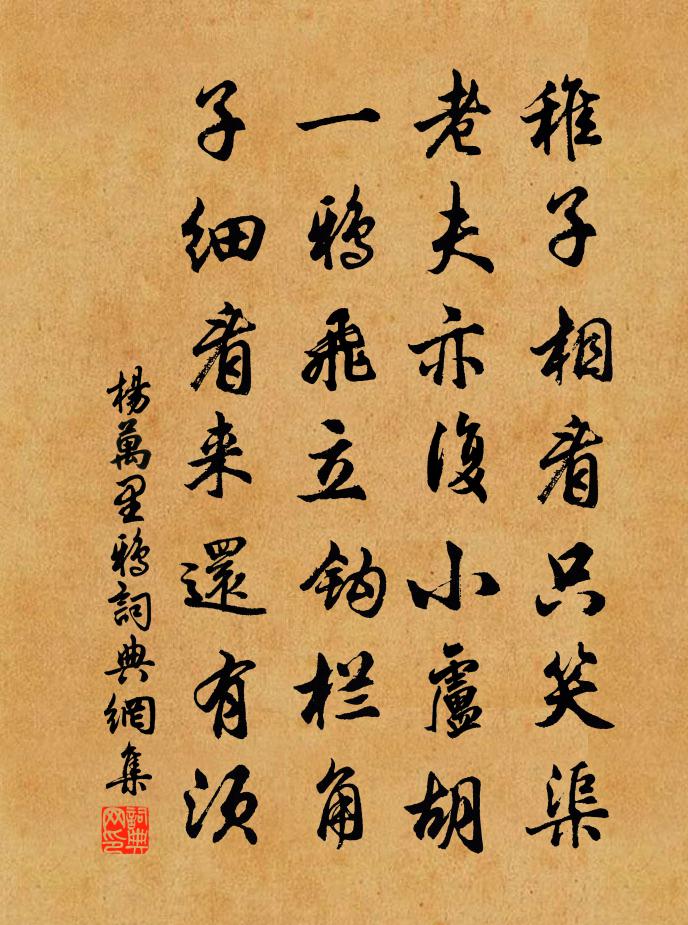 稚子相看只笑渠
老夫亦復小盧胡
一鴉飛立鈎栏角
子細看来還有須
楊萬里鴉詞典網集
詞典網印